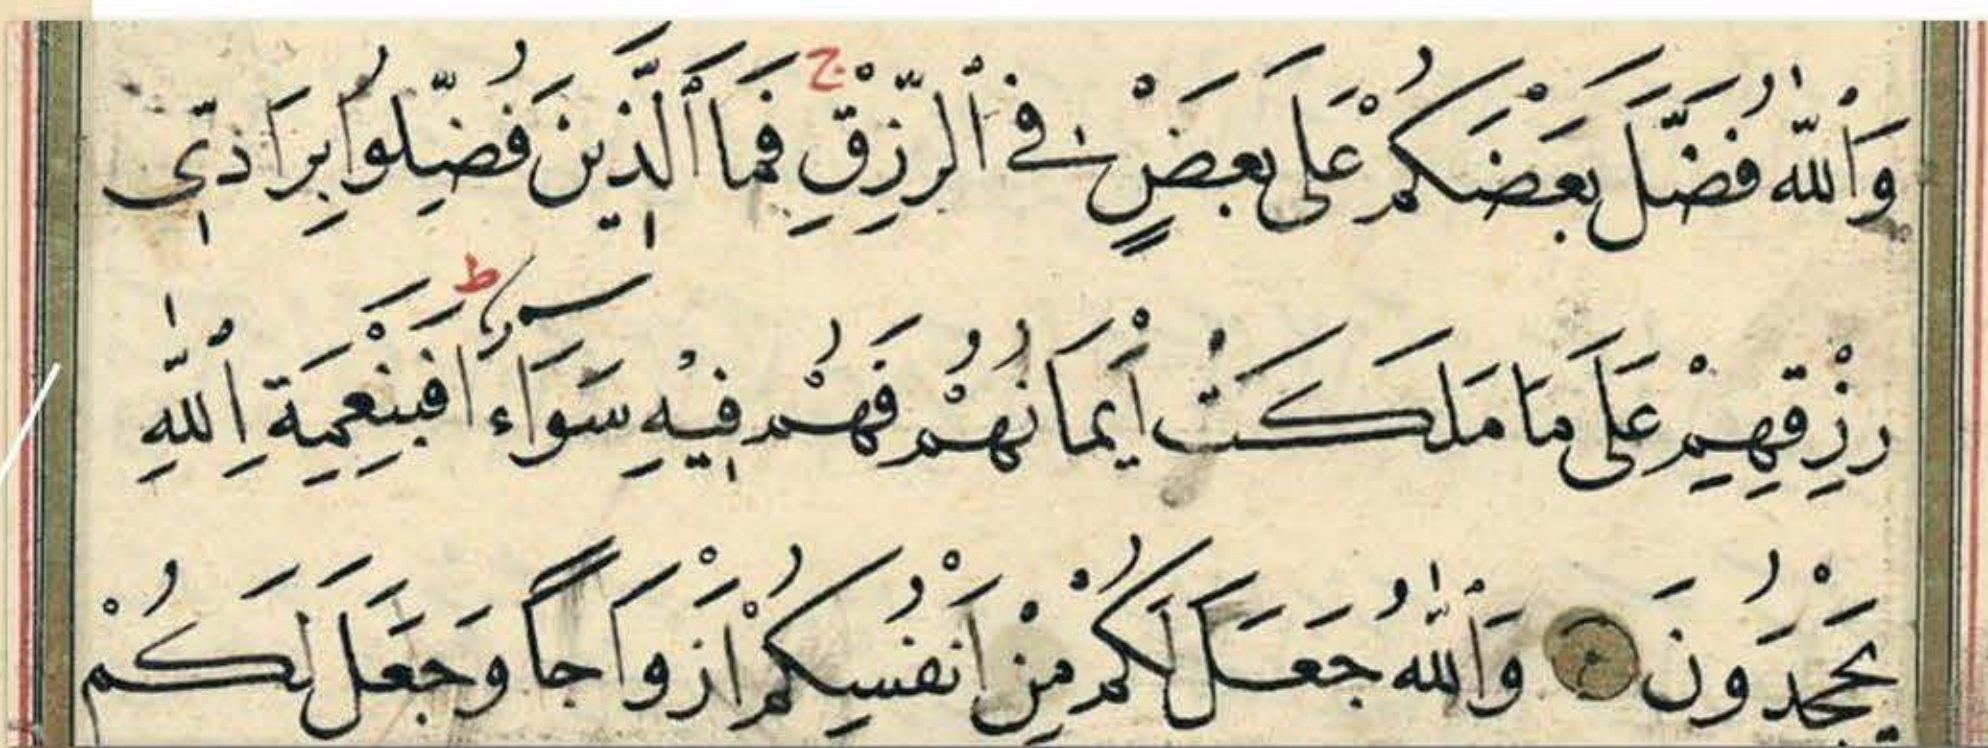 وَٱللّٰهُ فَضَّلَ بَعْضَكُمْ عَلَى بَعْضٍ فِى ٱلرِّزْقِ ج فَمَا ٱلَّذِينَ فُضِّلُوا بِرَادِّى
رِزْقِهِمْ عَلَى مَا مَلَكَتْ أَيْمَانُهُمْ فَهُمْ فِيْهِ سَوَآءٌ ط اَفَبِنِعْمَةِ ٱللّٰهِ
يَجْحَدُونَ وَٱللّٰهُ جَعَلَ لَكُمْ مِنْ اَنْفُسِكُمْ اَزْوَاجًا وَجَعَلَ لَكُمْ